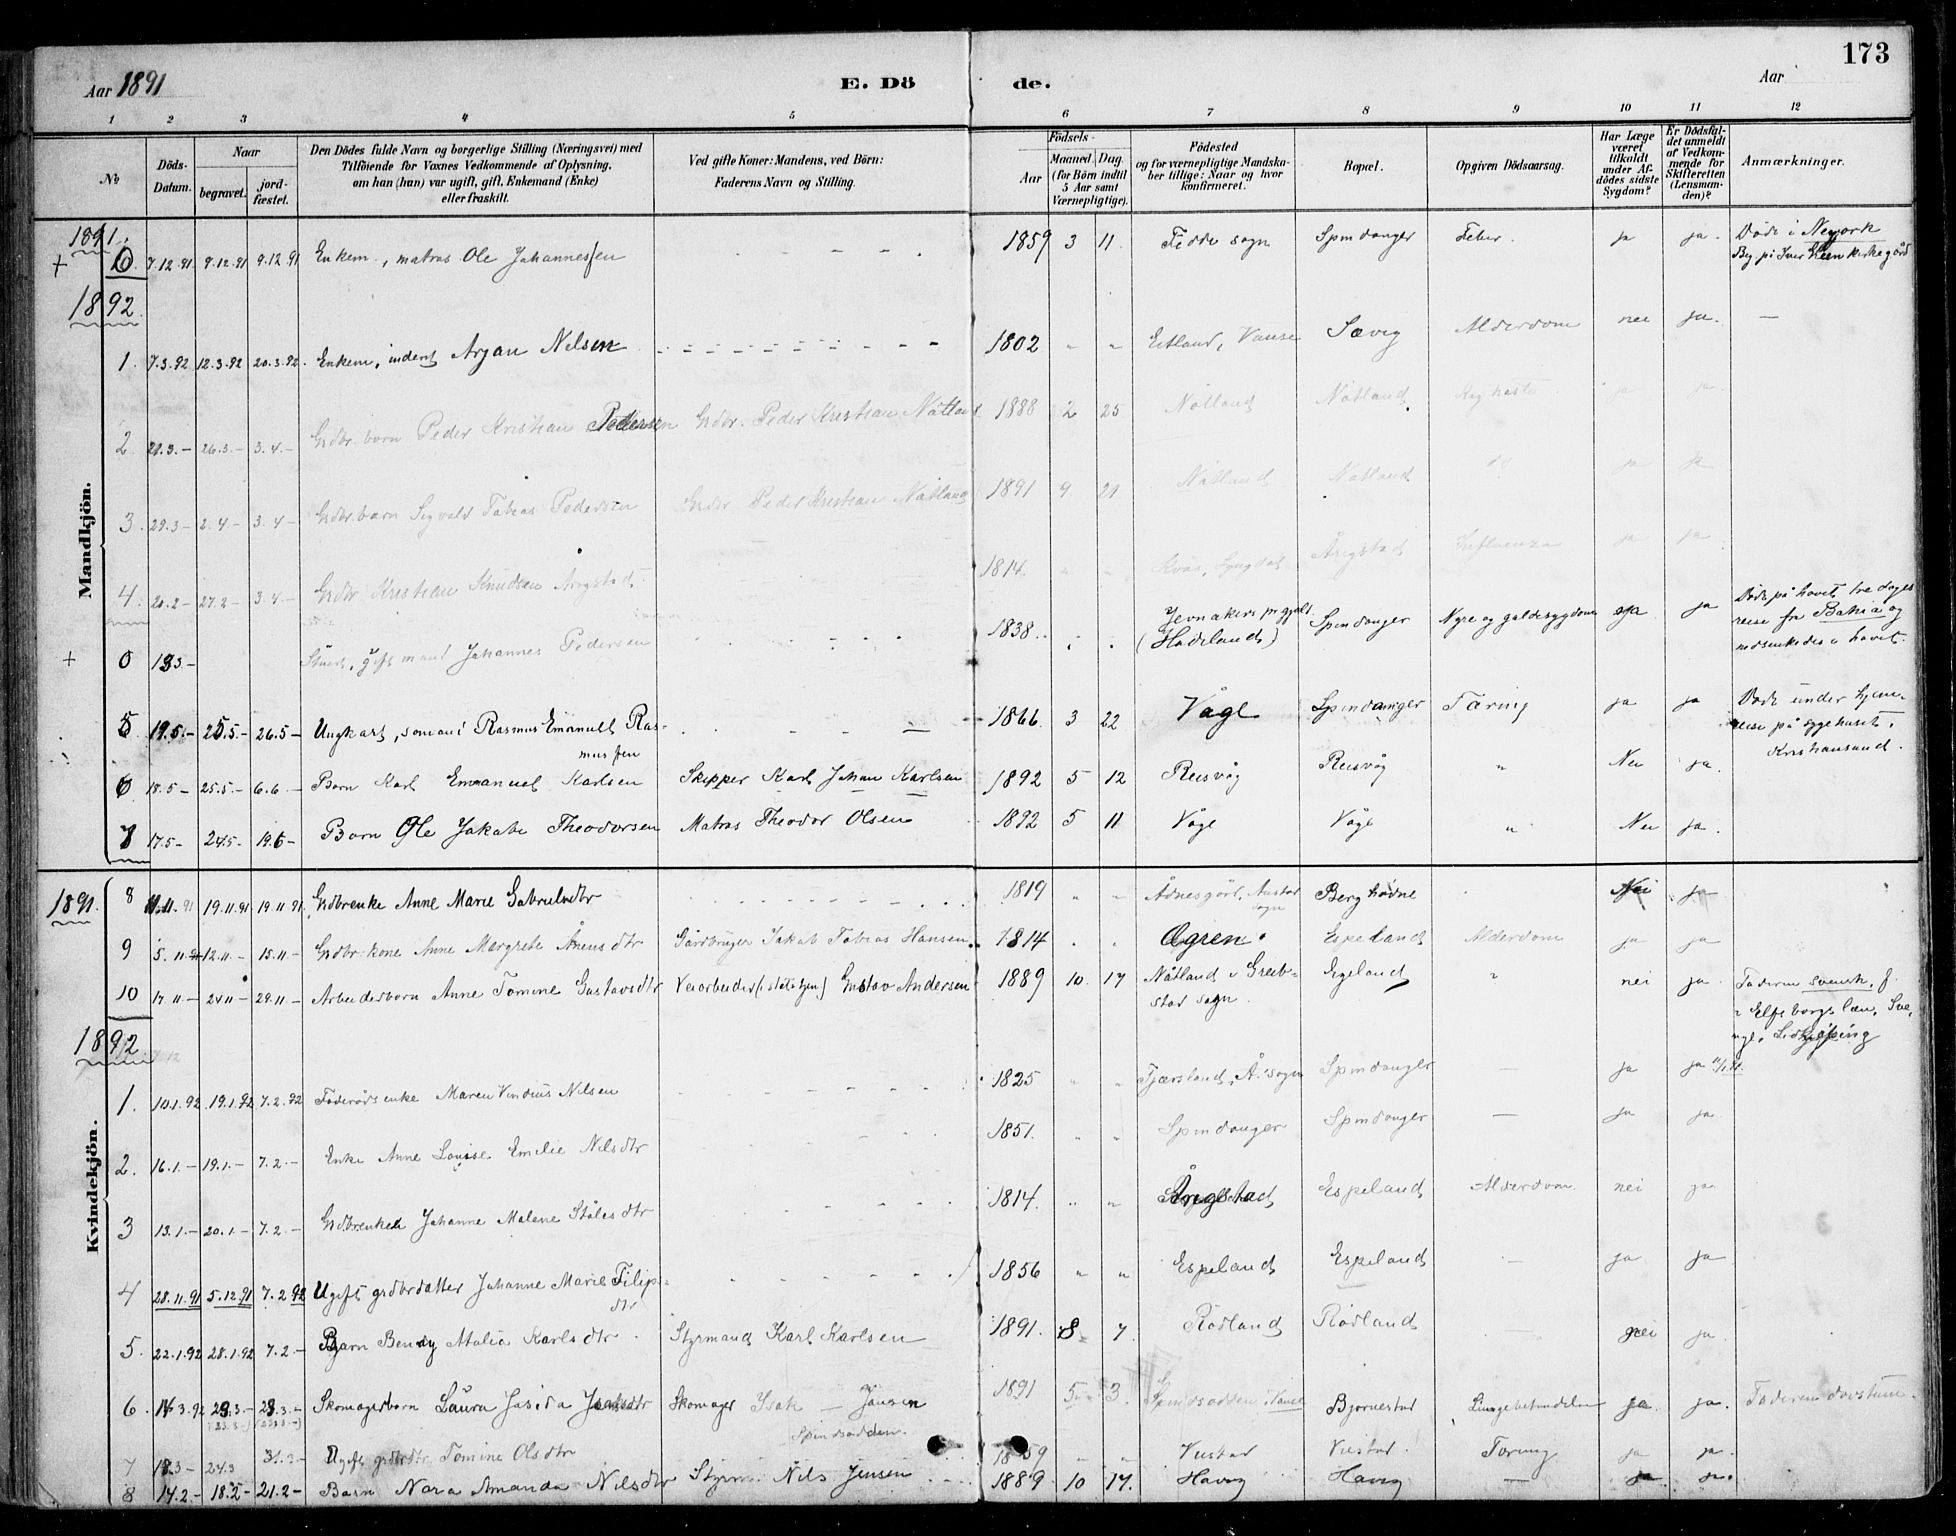 173
Aar 1891 E. Dö de. Aar
1 2 3 4 5 6 7 8 9 10 11 12
№
Döds-Datum.
Naar
begravet. jord-fæstet.
Den Dödes fulde Navn og borgerlige Stilling (Næringsvei) med
Tilföiende for Voxnes Vedkommende af Oplysning,
om han (hun) var ugift, gift, Enkemand (Enke)
eller fraskilt.
Ved gifte Koner: Mandens, ved Börn:
Faderens Navn og Stilling.
Födsels-
Aar Maaned. Dag.
(for Börn indtil
5 Aar samt
Værnepligtige).
Födested
og for værnepligtige Mandska-
ber tillige: Naar og hvor
konfirmeret.
Bopæl.
Opgiven Dödsaarsag.
Har Læge
været
tilkaldt
under Af-
dödes sidste
Sygdom?
Er Dödsfal-
det anmeldt
af Vedkom-
mende for
Skifteretten
(Lensman-
den)?
Anmærkninger.
Mandkjön.
1891.
+ 6 7.12.91 9.12.91 9.12.91 Enkem., matros Ole Johannessen 1859 3 11 Fedde sogn Spindanger Feber. ja ja. Döde i Newyork
Beg på kirkegård
1892
1. 7.3.92 12.3.92 20.3.92. Enkem, inderst Arjan Nilsen 1802 " " Eitland, Vanse Sævig Alderdom nei ja. —
2 26.3.– 3.4.– Grdbr. barn Peder Kristian Pedersen Grdbr. Peder Kristian Nåtland 1888 2 25 Nåtland Nåtland ja ja.
3. 29.3– 2.4– 3.4– Grdbr. barn Sigvald Tobias Pedersen Grdbr. Peder Kristian Nåtland 1891 9. 21 Nåtland Nåtland do ja ja
4. 20.2– 27.2– 3.4– Grdbr Kristian Knudsen Årigstad 1814. " " Kvås, Lyngdal Årigstad Influenza ja ja
+ 0 Stuert, gift mand Johannes Pedersen 1838. Jevnakers prgjld.
(Hadeland) Spindanger Nyre og galdesygdom ja ja Döde på havet tre dages
reise fra Bahia og
nedsænkedes i havet.
5 19.5.– 25.5.– 26.5– Ungkarl, sömand Rasmus Emanuel Ras-
mussen 1866. 3 22 Våge Spindanger Tæring ja ja Döde under hjem-
reise på sygehuset i
Kristiansand.
6 18.5– 25.5.– 6.6.– Barn Karl Emanuel Karlsen Skipper Karl Johan Karlsen 1892 5 12 Reisvåg Reisvåg " Nei ja.
7 17.5– 24.5– 19.6– Barn Ole Jakob Theodorsen Matros Theodor Olsen 1892 5 11 Våge Våge " Nei ja.
Kvindekjön.
1891. 8 11.11.91 19.11.91 19.11.91. Grdbrenke Anne Marie Gabrielsdtr 1819 " " Ådnesgård, Austad
sogn Berghødne Nei ja
9 5.11.– 12.11– 15.11– Grdbr. kone Anne Margrete Ånensdtr Gårdbruger Jakob Tobias Hansen. 1814 Øgren. Espeland Alderdom ja ja
10 17.11– 24.11– 29.11– Arbeiderbarn Anne Tomine Gustavsdtr Veiarbeider (i statstjen.) Gustav Andersen 1889 10. 17 Nåtland i Greib-
stad sogn. Egeland " nei ja. Faderen svensk, f.
i Elfsborgs læn, Sve-
rige, Lidkjöping
1892
1. 10.1.92 19.1.92 7.2.92 Föderådsenke Maren Nilsen 1825 " " Tjærsland, Å. sogn Spindanger — ja ja
2. 16.1.– 19.1.– 7.2.– Enke Anne Louise Emilie Nilsdtr 1851. " " Spindanger Spindanger — ja ja
3 13.1.– 20.1.– 7.2– Grdbrenke Johanne Malene Ståles dtr 1814. " " Årigstad Espeland Alderdom nei ja
4 28.11.91 5.12.91 7.2.92 Ugift grdbrdatter Johanne Marie Filips-
dtr 1856 " " Espeland Espeland — ja ja
5. 22.1.92 28.1.92 7.2.– Barn Malia Karlsdtr. Styrmand Karl Karlsen 1891. 8 7 Rödland Rödland — nei ja.
6. 14.3.92 23.3.– 28.3.– Skomagerbarn Laura Isaksdtr Skomager Isak – Jansen
Spindsodden. 1891 5 3. Spindsodden, Vanse Bjørnestad Lungebetændelse ja ja. Faderen døvstum.
(23.3.–) (23.3.–)
7 18.3– 24.3 31.3.– Ugift grdbrdtr Tomine Olsdtr 1859 " " Viestad Viestad. Tæring ja ja.
8 14.2.– 18.2– 21.2– Barn Nora Amanda Nilsdtr Styrm. Nils Jensen 1889 10 17. Haveg Haveg — ja ja.